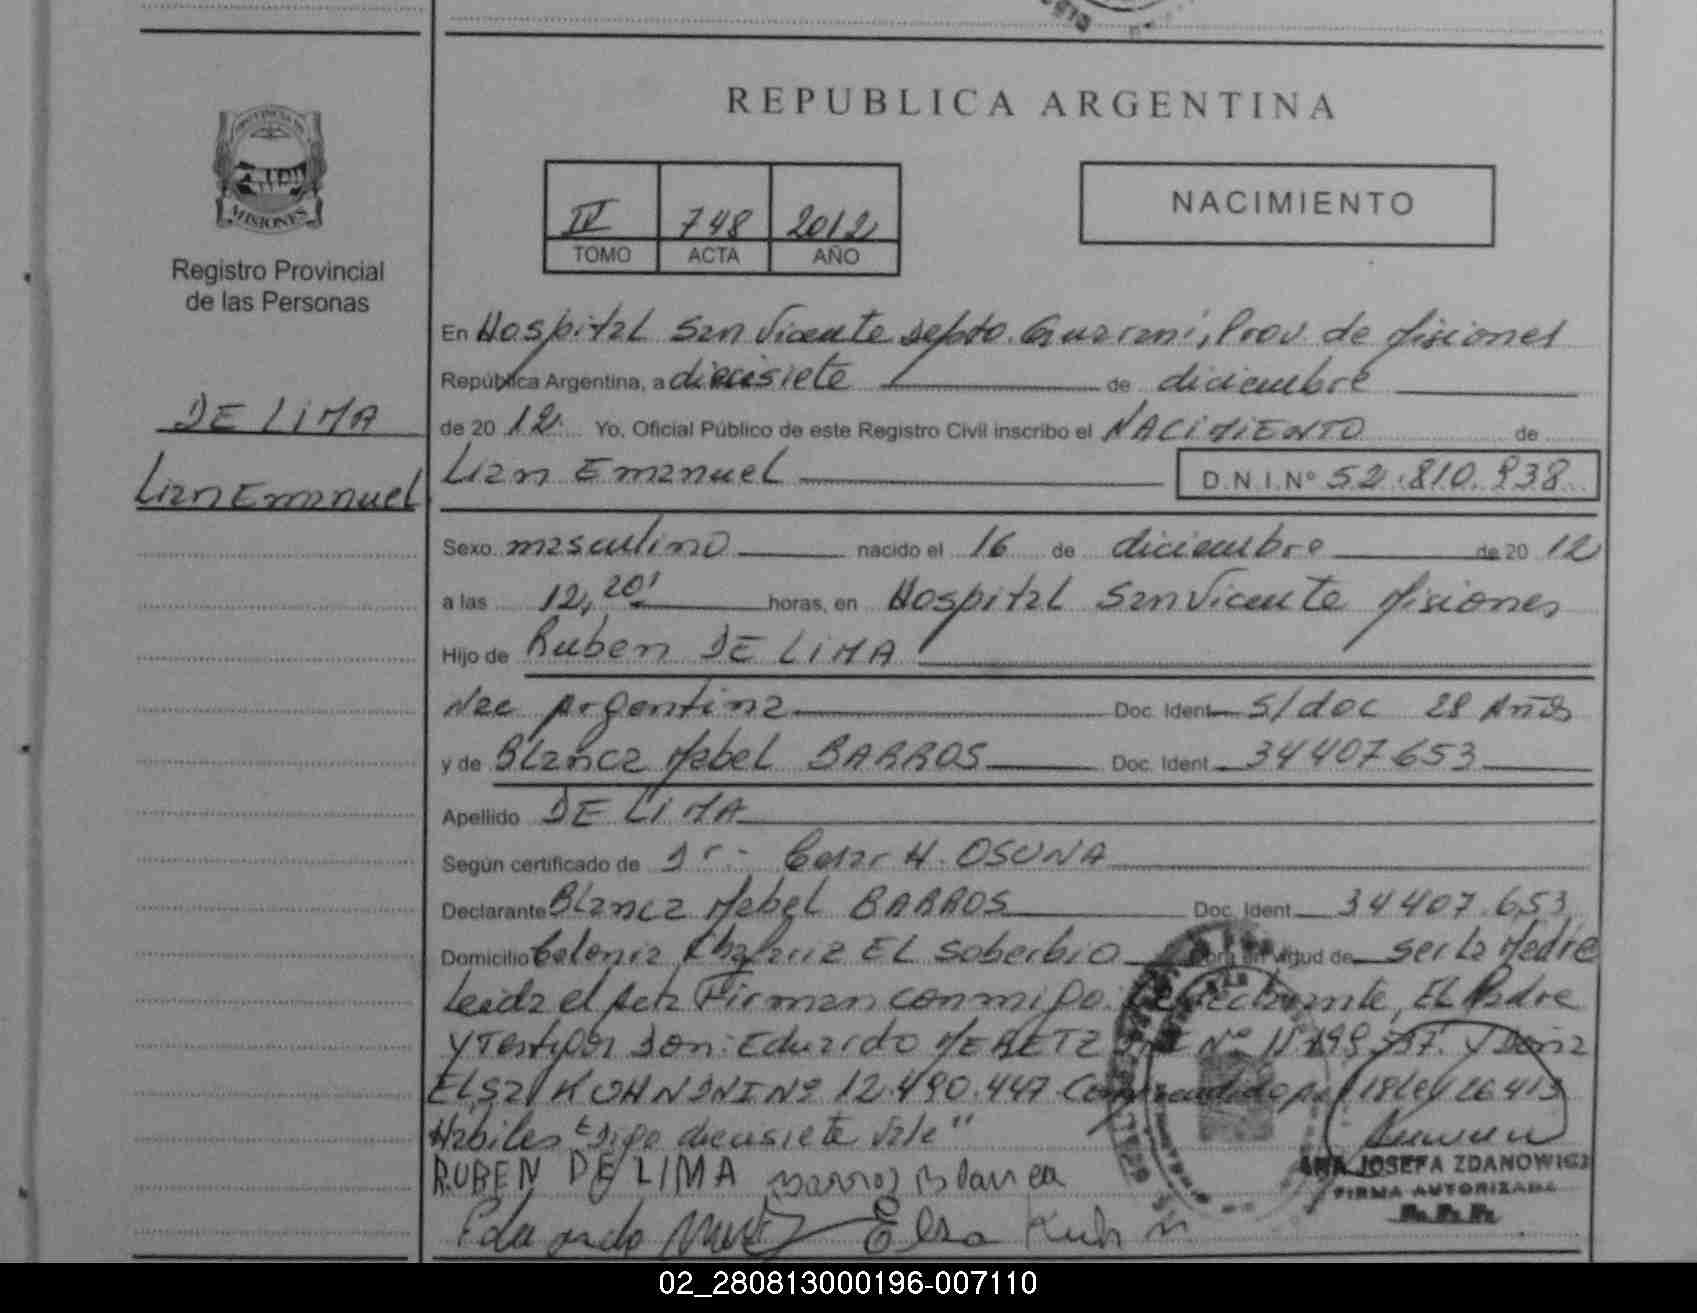 REPUBLICA ARGENTINA
NACIMIENTO
IV 748 2012
TOMO ACTA AÑO
PROVINCIA DE
MISIONES
Registro Provincial
de las Personas
DE LIMA
Lian Emanuel
En Hospital San Vicente Depto. Guarani, Prov. de Misiones
República Argentina, a diecisiete de diciembre
de 2012 Yo, Oficial Público de este Registro Civil inscribo el NACIMIENTO de
Lian Emanuel D.N.I.Nº 52.810.938
Sexo masculino nacido el 16 de diciembre de 2012
a las 12,20' horas, en Hospital San Vicente Misiones
Hijo de Ruben DE LIMA
Nac Argentina Doc. Ident. S/doc 28 Años
y de Blanca Mabel BARROS Doc. Ident. 34407653
Apellido DE LIMA
Según certificado de Dr. Cesar H. OSUNA
Declarante Blanca Mabel BARROS Doc. Ident. 34407.653
Domicilio Colonia EL Soberbio Obra en virtud de ser la Madre
Leida el Acta Firman conmigo. Declarante, EL Padre
y Testigos Don: Eduardo Nº y Doña
ELSA KUHN DNI Nº 12.490.447 Comprendido por la Ley 26413
Habiles "Digo diecisiete Vale"
RUBEN DE LIMA Barros Blanca
Eduardo Elsa Kuhn
ANA JOSEFA ZDANOWICZ
FIRMA AUTORIZADA
R.P.P.
02_280813000196-007110